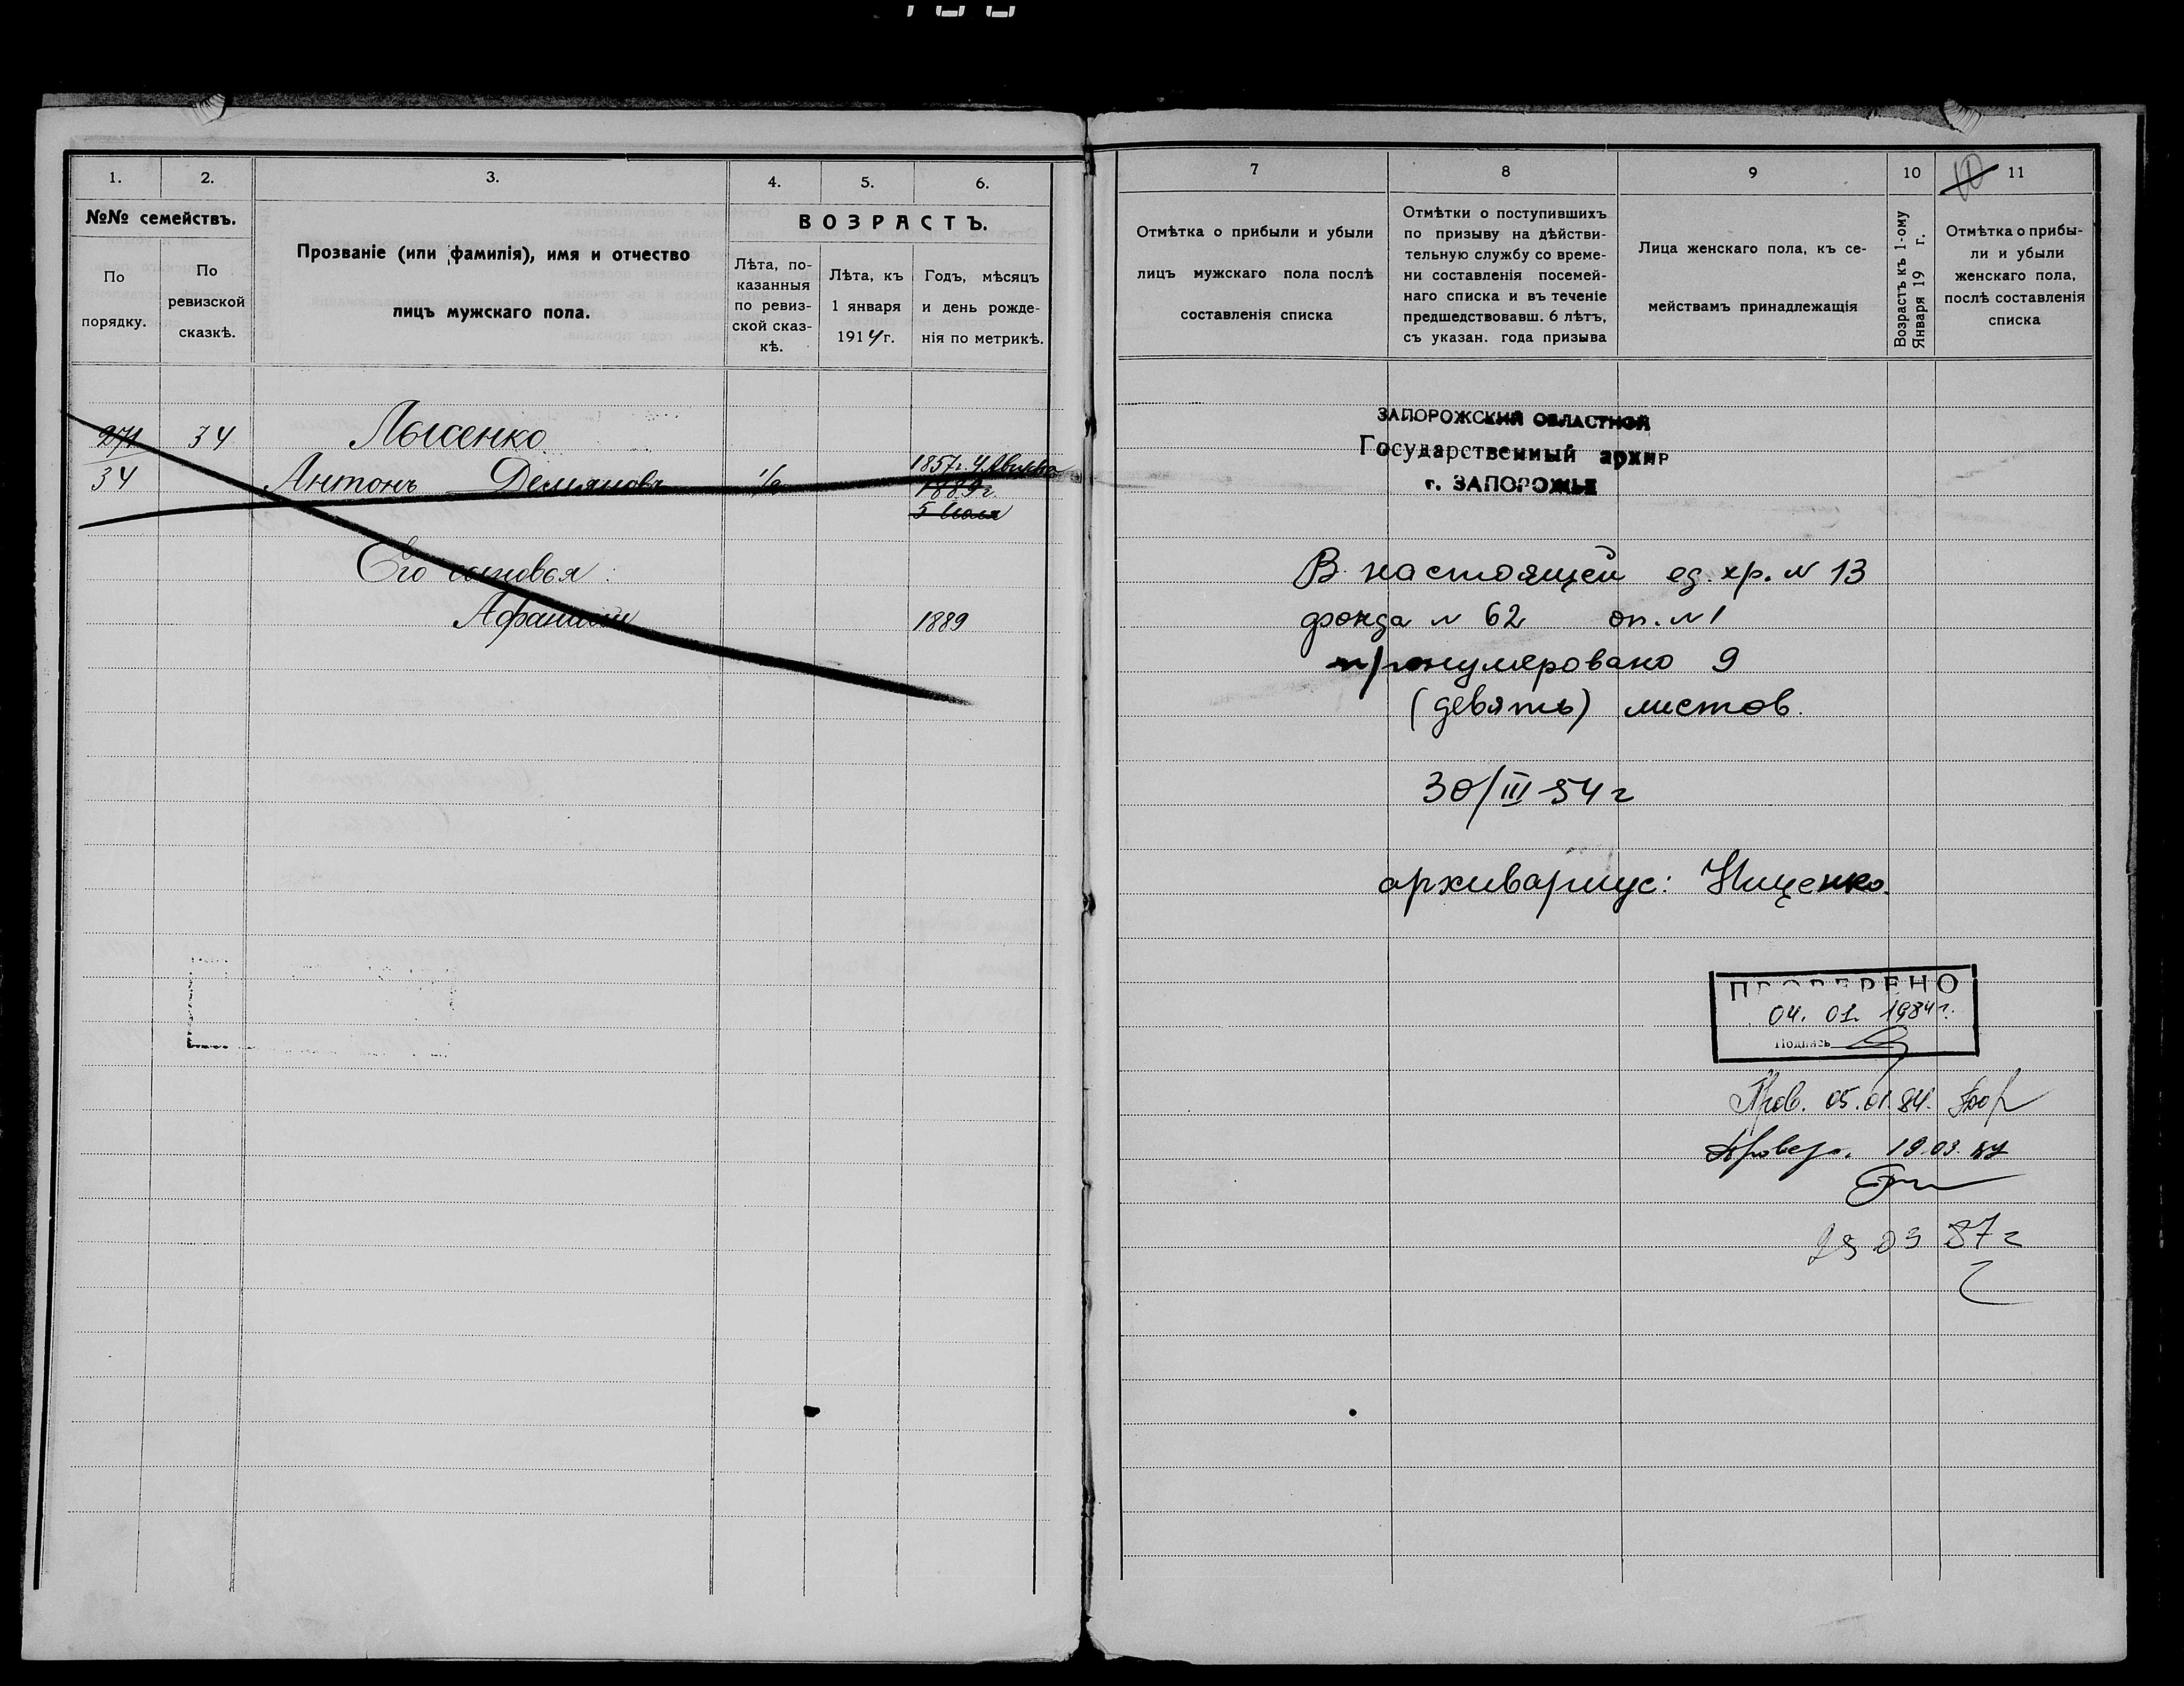 1.
2.
3.
4.
5.
6.
№№ семействъ.
По порядку.
По ревизской сказкѣ.
Прозваніе (или фамилія), имя и отчество
лицъ мужскаго пола.
ВОЗРАСТЪ.
Лѣта, по-
казанныя
по ревиз-
ской сказ-
кѣ.
Лѣта, къ
1 января
1914 г.
Годъ, мѣсяцъ
и день рожде-
нія по метрикѣ.
271
34
34
Лысенко
Антонъ Демяновъ
1857 г. 4
1889 г.
5 Июля
Его сыновья:
Афанасий
1889
7
8
9
10
10
11
Отмѣтка о прибыли и убыли
лицъ мужскаго пола послѣ
составленія списка
Отмѣтки о поступившихъ
по призыву на дѣйстви-
тельную службу со време-
ни составленія посемей-
наго списка и въ теченіе
предшедствовавш. 6 лѣтъ,
съ указан. года призыва
Лица женскаго пола, къ се-
мействамъ принадлежащія
Возрастъ къ 1-ому
Января 19 г.
Отмѣтка о прибы-
ли и убыли
женскаго пола,
послѣ составленія
списка
ЗАПОРОЖСКИЙ ОБЛАСТНОЙ
Государственный архив
г. ЗАПОРОЖЬЕ
В настоящей ед. хр. N 13
фонда N 62 оп. N 1
пронумеровано 9
(девять) листов.
30/III-54 г
архивариус: Нищенко.
ПРОВЕРЕНО
04. 01. 1984 г.
Подпись
Пров. 05.01.84.
Провер. 19.03.
03 87 г